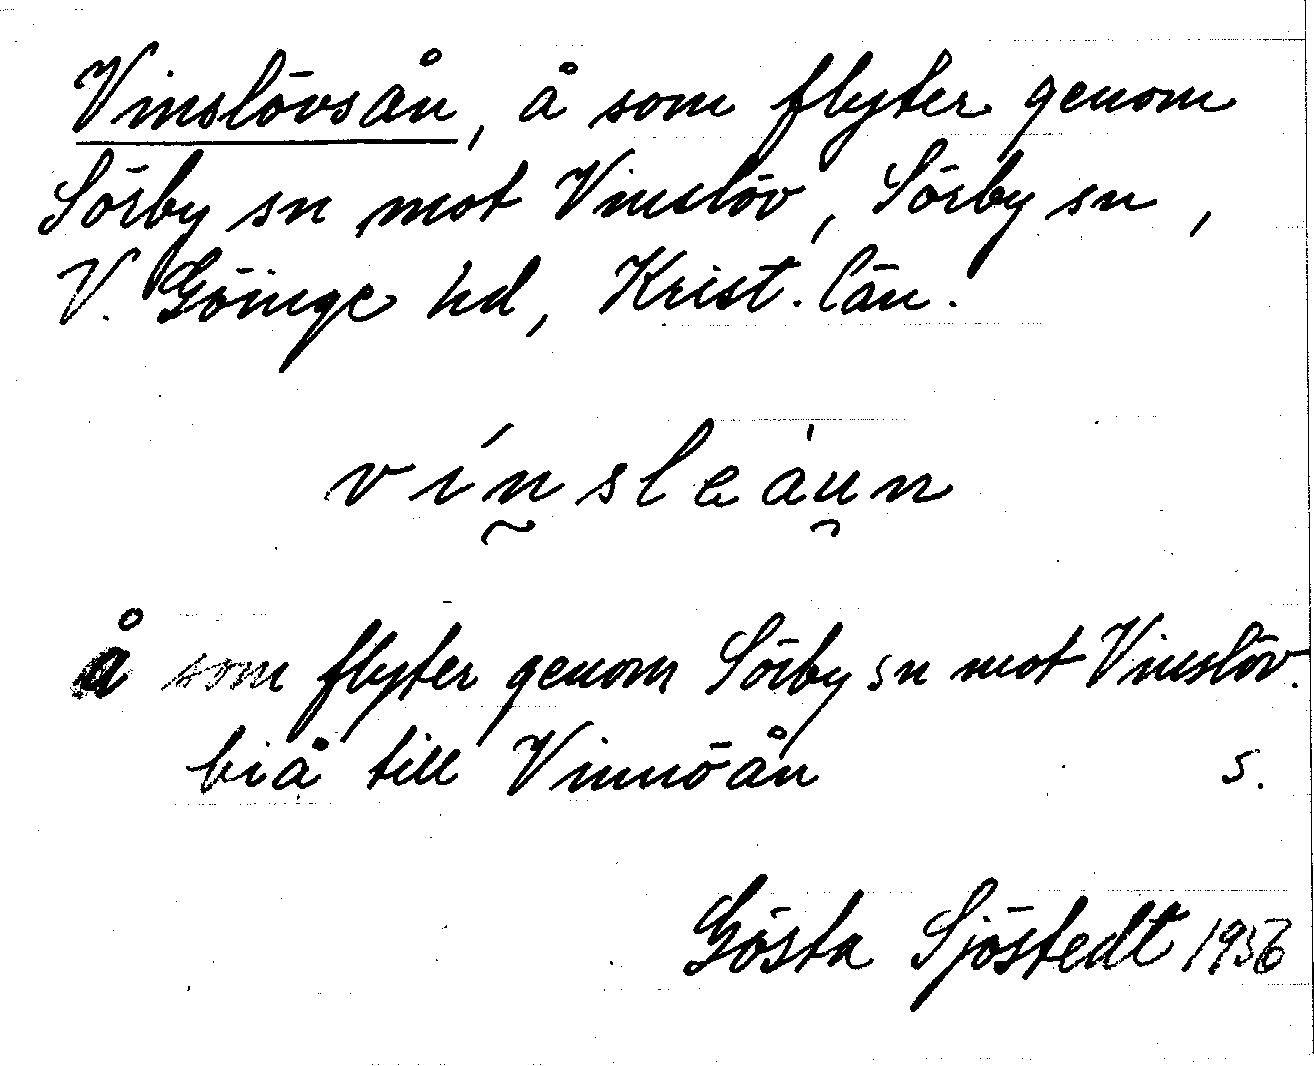 Vinslövsån, å som flyter genom
Sörby sn mot Vinslöv, Sörby sn,
V. Göinge hd, Krist. län.
vínsleàu̯n
å som flyter genom Sörby sn mot Vinslöv.
biå till Vinnöån s.
Gösta Sjöstedt 1956